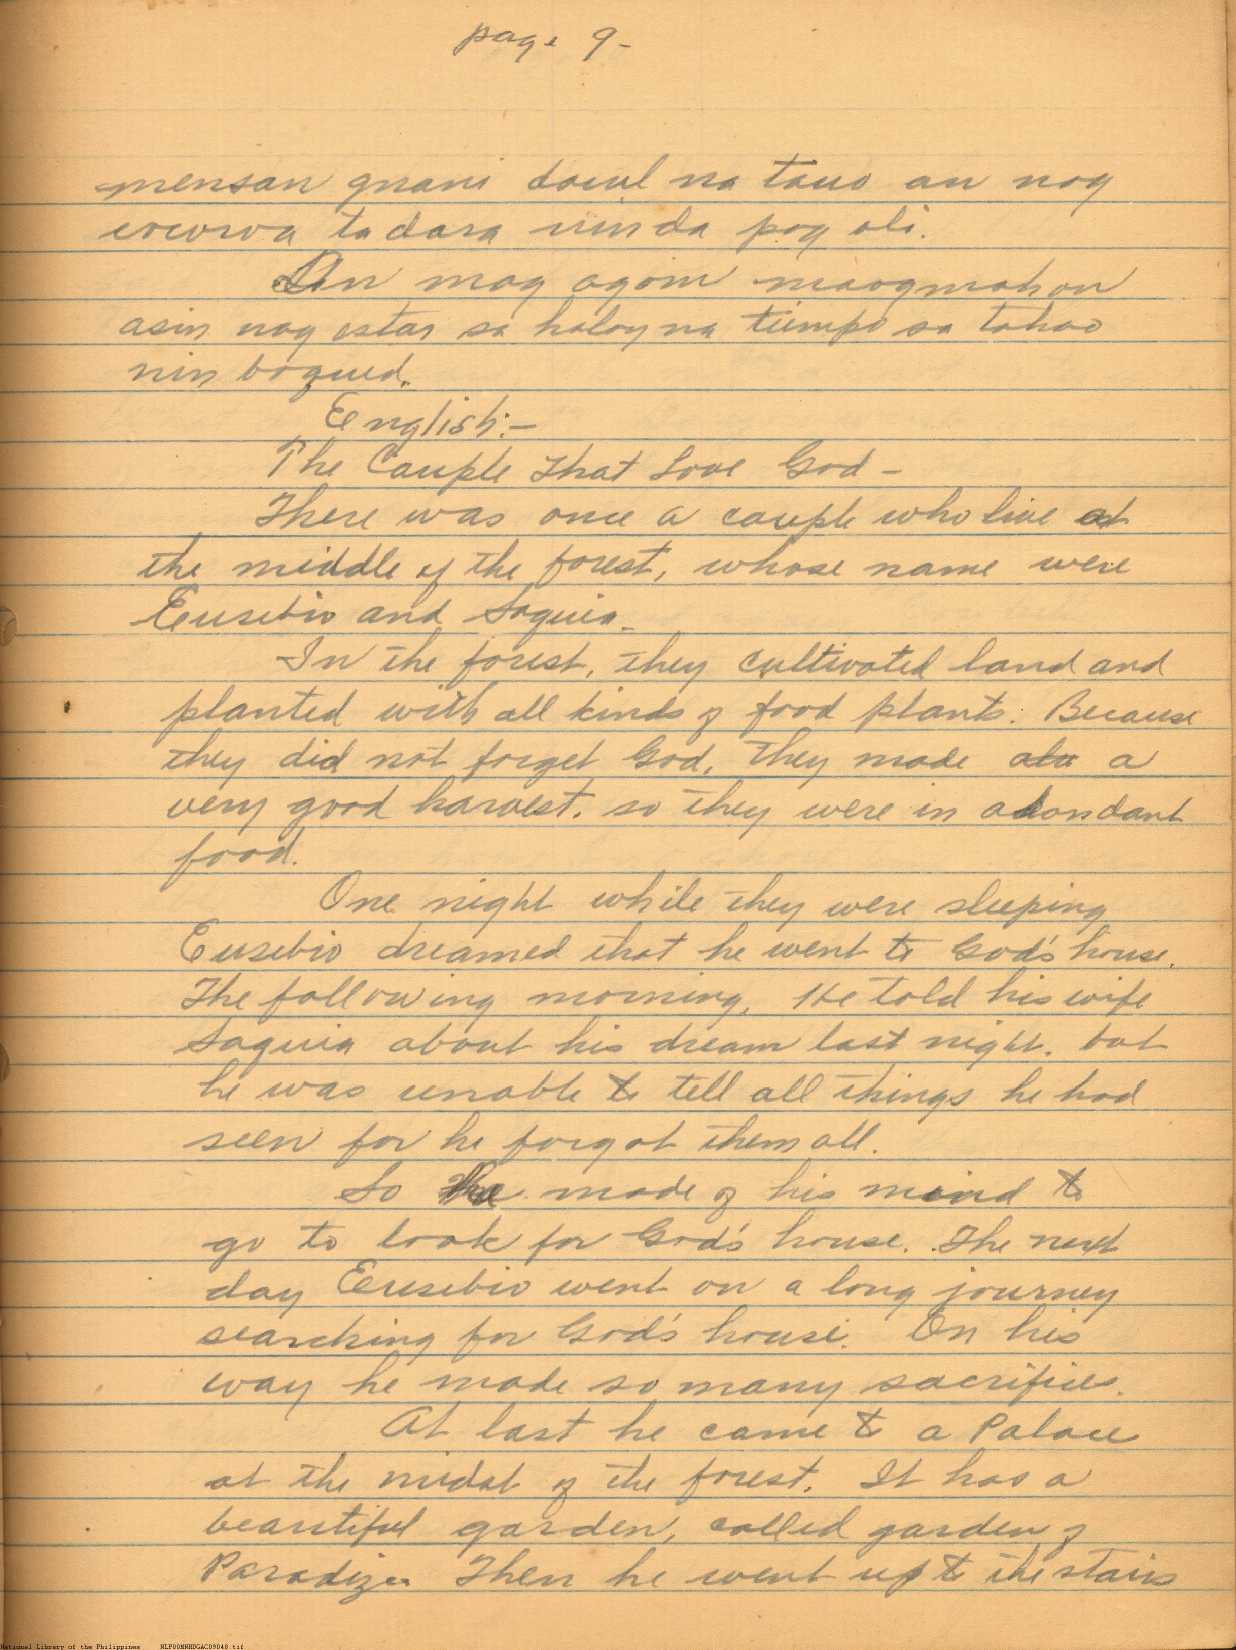 page 9-
mensan gnani dacul na tauo an nag
cocowa ta dara ninda pag oli.
An mag agom maogmahon
asin nag estar sa haloy na tiempo sa tahao
nin bogued.
English:-
The Couple That Love God -
There was once a couple who live at
the middle of the forest, whose name were
Eusebio and Saquia.
In the forest, they cultivated land and
planted with all kinds of food plants. Because
they did not forget God, they made a
very good harvest. so they were in abondant
food.
One night while they were sleeping
Eusebio dreamed that he went to God's house.
The following morning, He told his wife
Saquia about his dream last night. but
he was unable to tell all things he had
seen for he forgot them all.
So he made of his mind to
go to look for God's house. The next
day Eusebio went on a long journey
searching for God's house. On his
way he made so many sacrifices.
At last he came to a Palace
at the midst of the forest. It has a
beautiful garden, called garden of
Paradize. Then he went up to the stairs
National Library of the Philippines NLP00MNHDGAC09048.tif